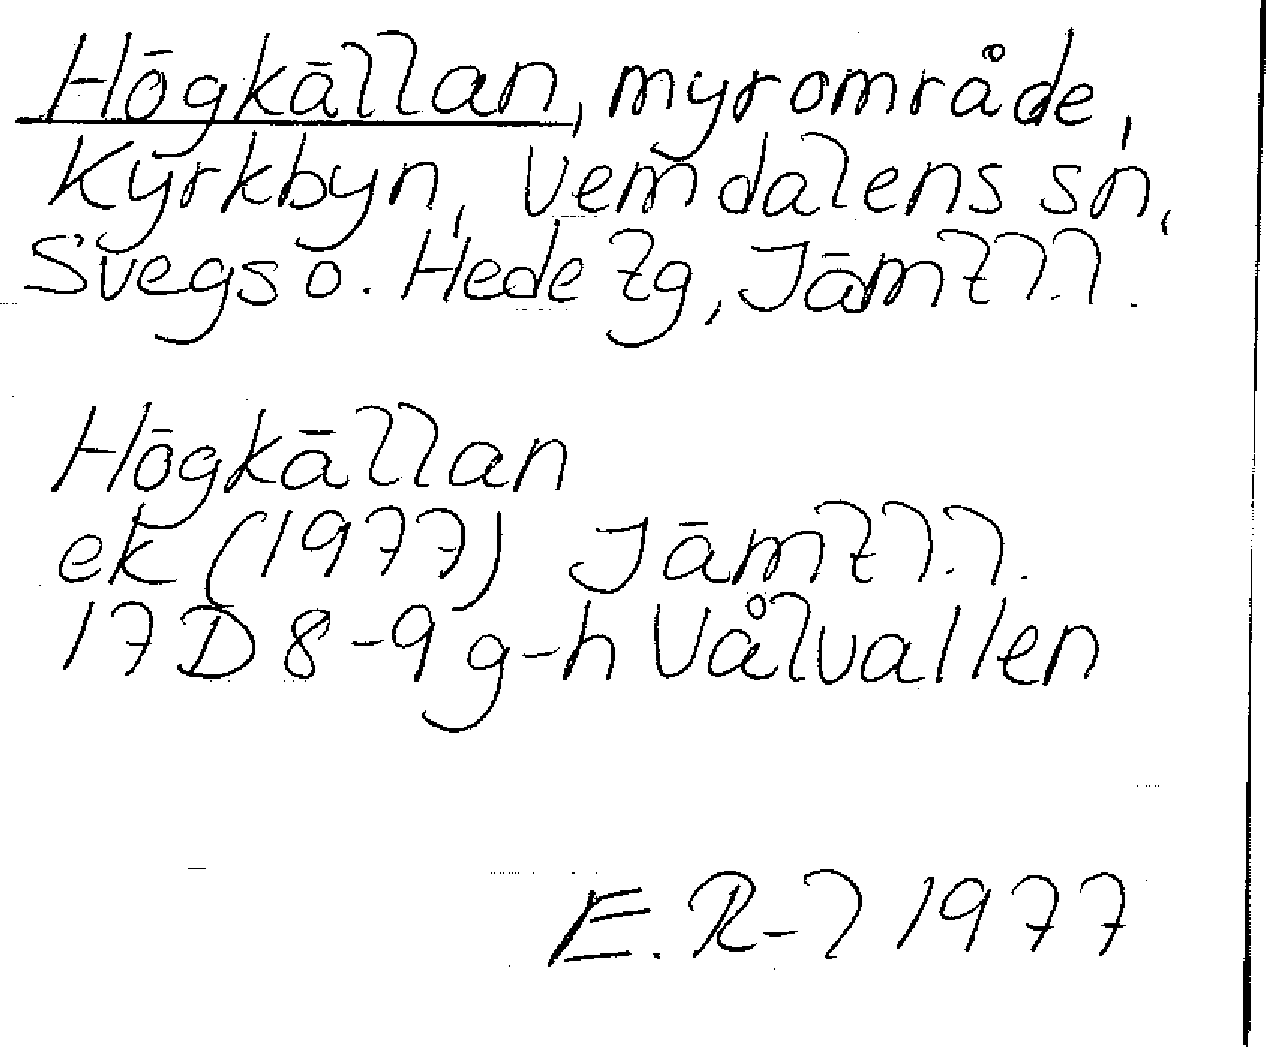 Högkällan, myrområde,
Kyrkbyn, Vemdalens sn,
Svegs o. Hede tg, Jämtl.l.
Högkällan
ek (1977) Jämtl.l.
17D 8-9 g-h Vålvallen
E. R-l 1977